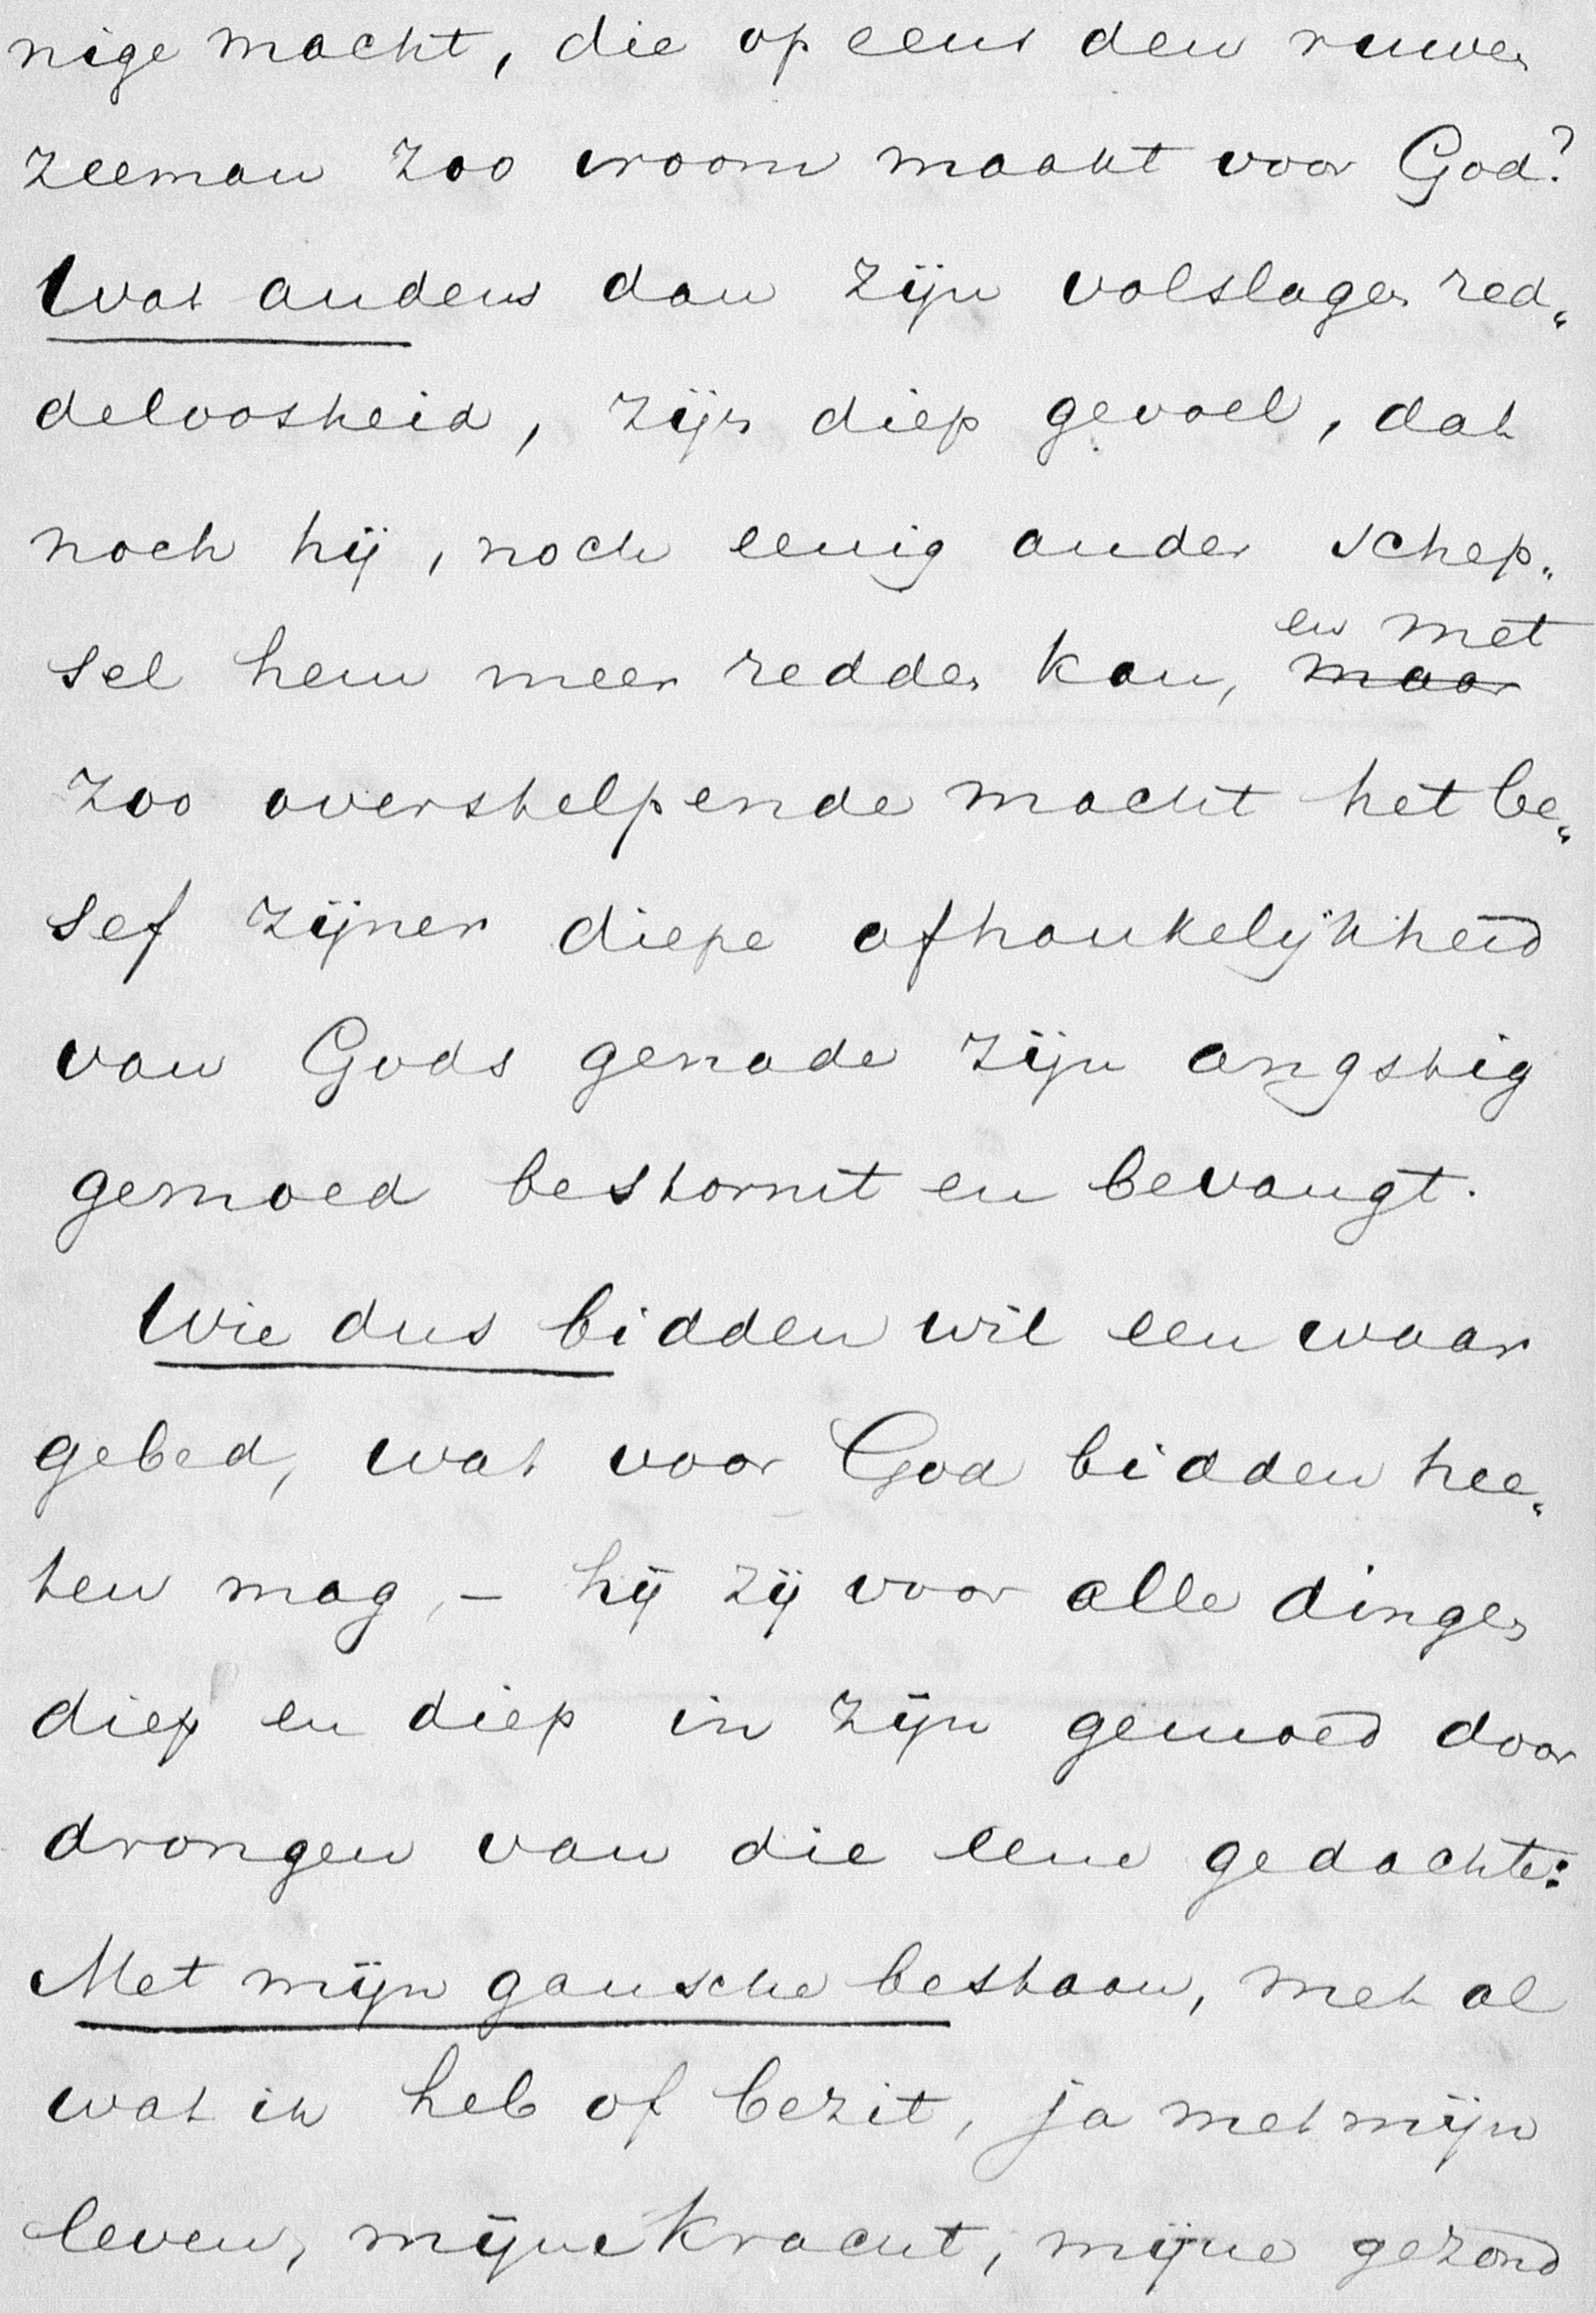 nige macht, die op eens den ruwen
zeeman zoo vroom maakt voor God?
Wat anders dan zijn volslagen red„
deloosheid, zijn diep gevoel, dat
noch hij, noch eenig ander schep„
sel hem meer redden kan, maar
en met
zoo overstelpende macht het be„
sef zijner diepe afhankelijkheid
van Gods genade zijn angstig
gemoed bestormt en bevangt.
Wie dus bidden wil een waar
gebed, wat voor God bidden hee„
ten mag, – hij zij voor alle dingen
diep en diep in zijn gemoed door
drongen van die eene gedachte:
Met mijn gansche bestaan, met al
wat ik heb of bezit, ja met mijn
leven, mijne kracht, mijne gezond